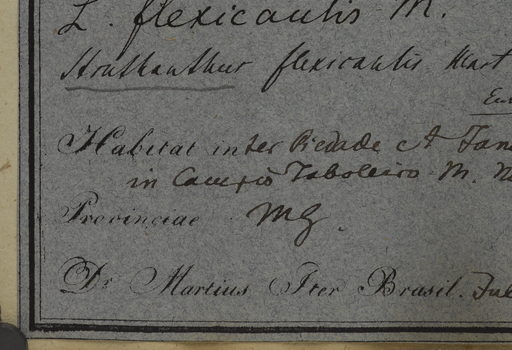 L. flexicaulis M.
Struthanthus flexicaulis Mart
Habitat inter Piedade et
in Campis Taboleiro M.
Provinciae MG.
Dr Martius Iter Brasil. Jul